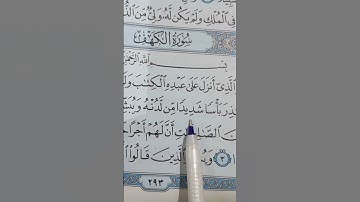 فِي الْمُلْكِ وَلَمْ يَكُن لَّهُ وَلِيٌّ مِّنَ
سُورَةُ الْكَهْفِ
بِسْمِ اللَّهِ الرَّحْمَٰنِ
الَّذِي أَنزَلَ عَلَىٰ عَبْدِهِ الْكِتَابَ وَلَمْ
بَأْسًا شَدِيدًا مِّن لَّدُنْهُ وَيُبَشِّرَ
أَنَّ لَهُمْ أَجْرًا
٣ الَّذِينَ قَالُوا
٢٩٣